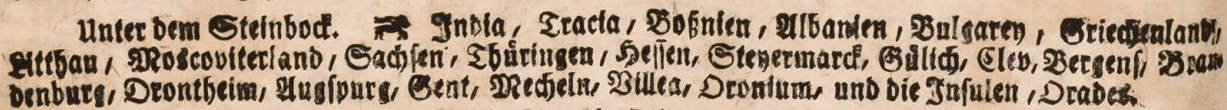 Unter dem Steinbock. ♑ India, Tracia, Boßnien, Albanien, Bulgarey, Griechenland,
Litthau, Moscoviterland, Sachsen, Thüringen, Hessen, Steyermarck, Gülich, Clev, Bergens, Bran-
denburg, Drontheim, Augspurg, Gent, Mecheln, Villea, Oronium, und die Insulen, Orades.